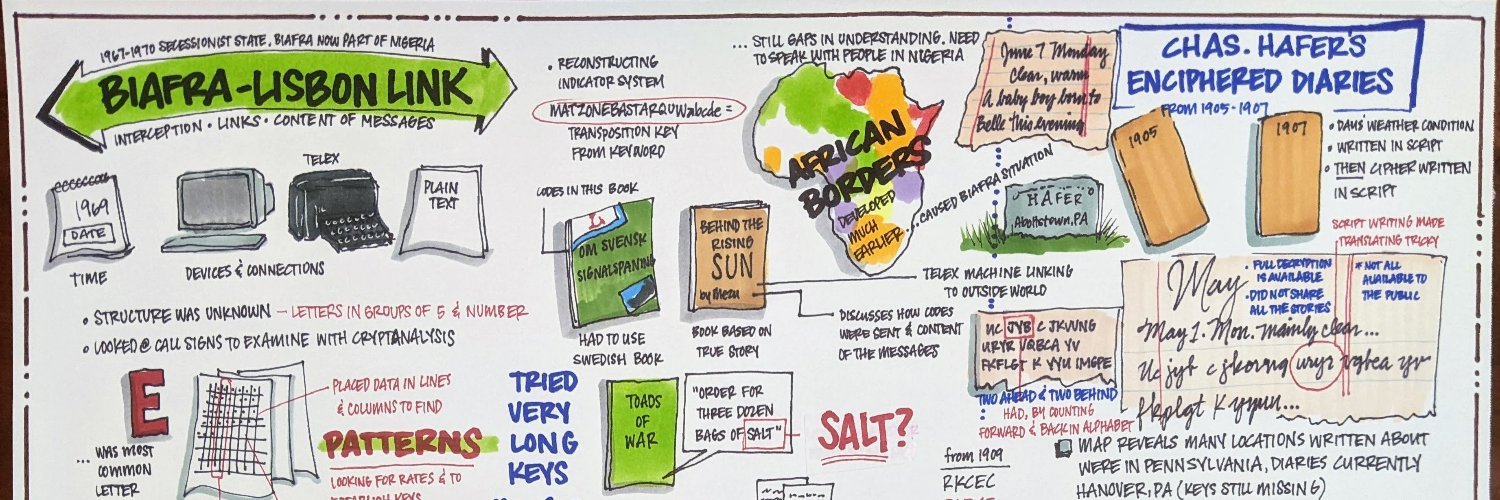 1967-1970 SECESSIONIST STATE, BIAFRA NOW PART OF NIGERIA
BIAFRA-LISBON LINK
INTERCEPTION • LINKS • CONTENT OF MESSAGES
1969
DATE
TIME
TELEX
DEVICES & CONNECTIONS
PLAIN
TEXT
• STRUCTURE WAS UNKNOWN — LETTERS IN GROUPS OF 5 & NUMBER
• LOOKED @ CALL SIGNS TO EXAMINE WITH CRYPTANALYSIS
E
... WAS MOST
COMMON
LETTER
PLACED DATA IN LINES
& COLUMNS TO FIND
PATTERNS
LOOKING FOR RATES & TO
TRIED
VERY
LONG
KEYS
• RECONSTRUCTING
INDICATOR SYSTEM
MATZONEBASTARQUWabcde =
TRANSPOSITION KEY
FROM KEYWORD
CODES IN THIS BOOK
OM SVENSK
SIGNALSPANING
HAD TO USE
SWEDISH BOOK
BEHIND THE
RISING
SUN
by Mezu
BOOK BASED ON
TRUE STORY
TOADS
OF
WAR
"ORDER FOR
THREE DOZEN
BAGS OF SALT"
SALT?
... STILL GAPS IN UNDERSTANDING, NEED
TO SPEAK WITH PEOPLE IN NIGERIA
AFRICAN
BORDERS
DEVELOPED
MUCH
EARLIER
...CAUSED BIAFRA SITUATION
TELEX MACHINE LINKING
TO OUTSIDE WORLD
DISCUSSES HOW CODES
WERE SENT & CONTENT
OF THE MESSAGES
June 7 Monday
Clear, warm
A baby boy born to
Belle this evening
HAFER
Abbottstown, PA
CHAS. HAFER'S
ENCIPHERED DIARIES
FROM 1905-1907
1905
1907
• DAYS' WEATHER CONDITION
• WRITTEN IN SCRIPT
• THEN CIPHER WRITTEN
IN SCRIPT
SCRIPT WRITING MADE
TRANSLATING TRICKY
UC JYB C JKWNG
URYR VQBCA YV
FKFLGT K YYU IMGPE
TWO AHEAD & TWO BEHIND
HAD, BY COUNTING
FORWARD & BACK IN ALPHABET
from 1909
RKCEC
May
• FULL DECRYPTION
IS AVAILABLE
• DID NOT SHARE
ALL THE STORIES
* NOT ALL
AVAILABLE TO
THE PUBLIC
May 1. Mon. mainly clear...
Uc jyb c jkovng uryr vqbca yv
MAP REVEALS MANY LOCATIONS WRITTEN ABOUT
WERE IN PENNSYLVANIA, DIARIES CURRENTLY
HANOVER, PA (KEYS STILL MISSING)